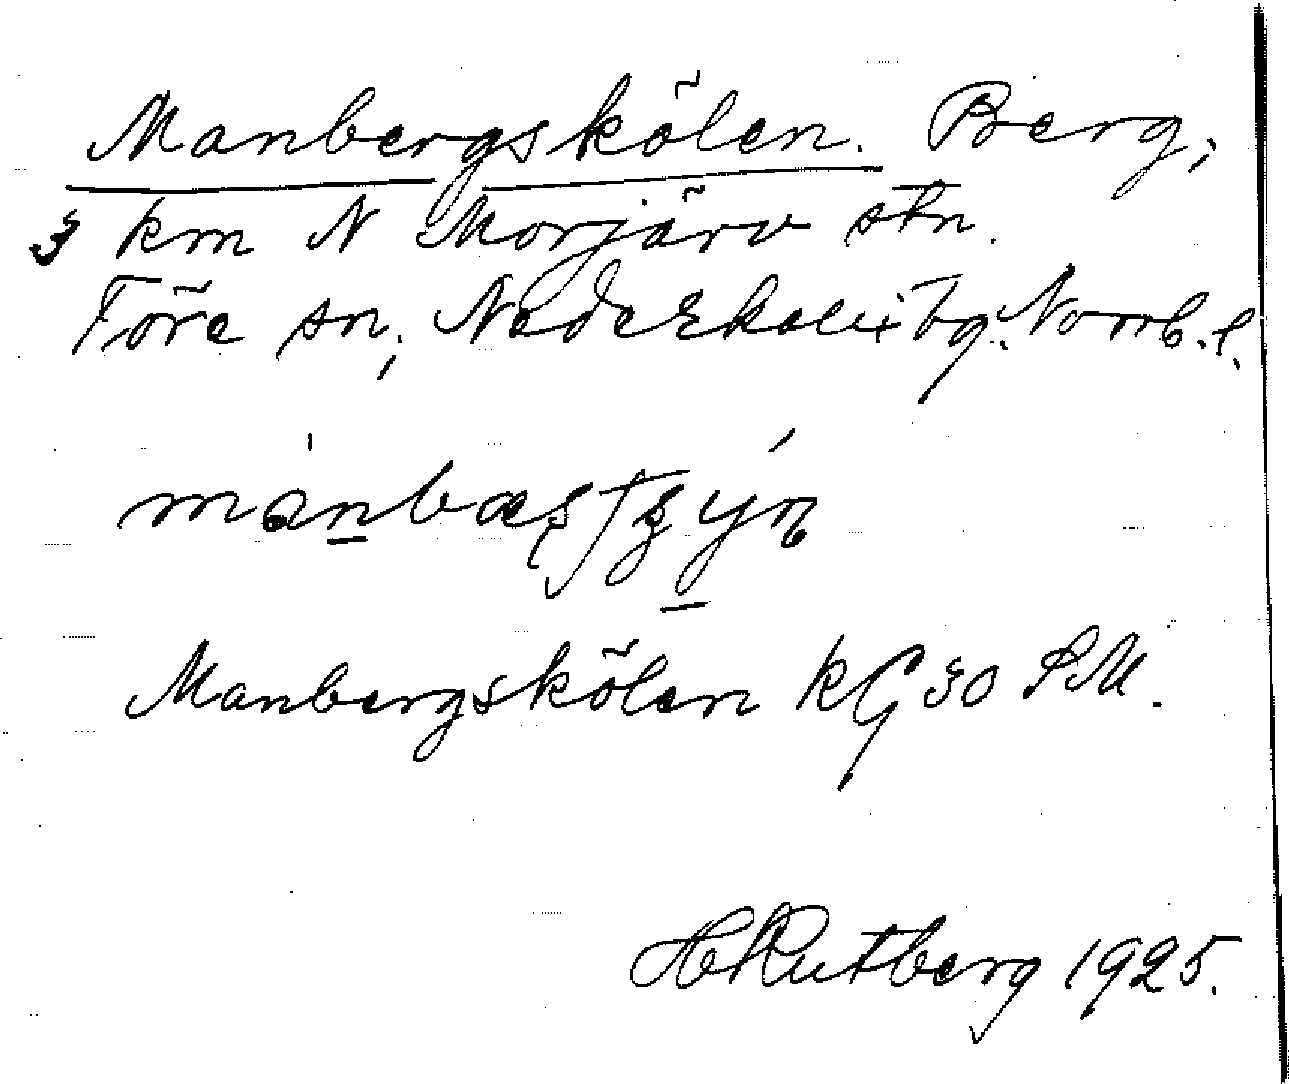 Manbergskölen. Berg,
3 km N Morjärv stn.
Töre sn, Nederkalix tg. Norrb. l.
Manbergskölen KG 30 SM.
H Rutberg 1925.